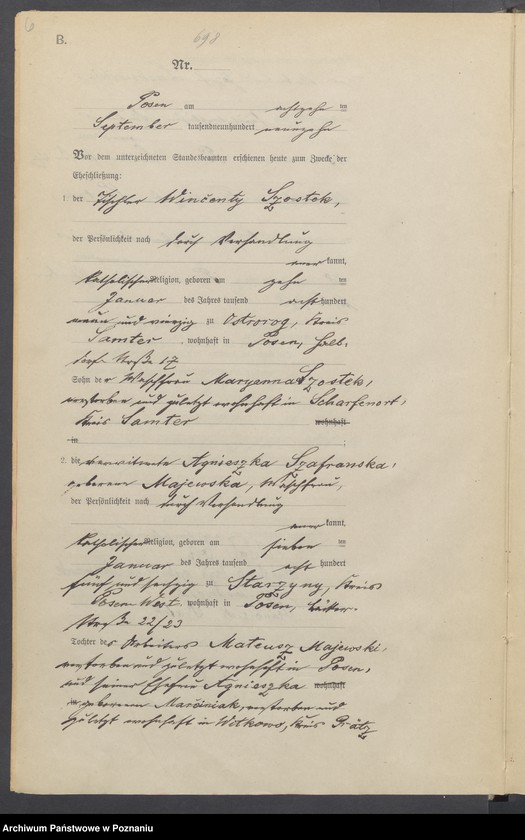 B.
698
Nr.
Posen am achtzehn ten
September tausendneunhundert neunzehn
Vor dem unterzeichneten Standesbeamten erschienen heute zum Zwecke der
Eheschließung:
1. der Tischler Wincenty Szostek,
der Persönlichkeit nach durch Verhandlung
aner kannt,
katholischer Religion, geboren am zehn ten
Januar des Jahres tausend acht hundert
neun und vierzig zu Ostrorog, Kreis
Samter, wohnhaft in Posen, Halb-
dorf Straße 17
Sohn der Waschfrau Maryanna Szostek,
verstorben und zuletzt wohnhaft in Scharfenort,
Kreis Samter wohnhaft
in ;
2. die verwitwete Agnieszka Szafranska,
geborene Majewska, Waschfrau,
der Persönlichkeit nach durch Verhandlung
aner kannt,
katholischer Religion, geboren am sieben ten
Januar des Jahres tausend acht hundert
fünf und sechzig zu Starzyny, Kreis
Posen West, wohnhaft in Posen, Bäcker-
Straße 22/23
Tochter des Arbeiters Mateusz Majewski,
verstorben und zuletzt wohnhaft in Posen,
und seiner Ehefrau Agnieszka wohnhaft
in geborenen Marciniak, verstorben und
zuletzt wohnhaft in Witkowo, Kreis Grätz
Archiwum Państwowe w Poznaniu